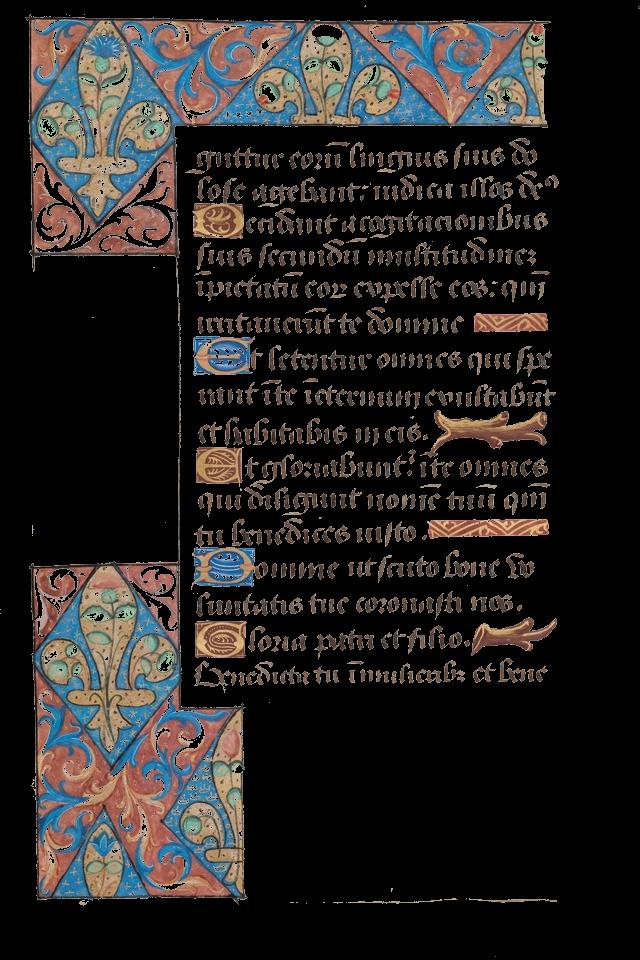 guttur eorū linguis suis do
lose agebant: iudica illos de᷒
Decidant a cogitacionibus
suis secundū multitudinez
īpietatū eor expelle eos: qm̄
irritauerūt te domine
Et letentur omnes qui spe
rant ī te ī eternum exultabūt
et habitabis in eis.
Et gloriabunt᷒ ī te omnes
qui diligunt nomē tuū qm̄
tu benedices iusto.
Domine ut scuto bone vo
luntatis tue coronasti nos.
Gloria patri et filio.
Benedicta tu ī mulieribz et bene